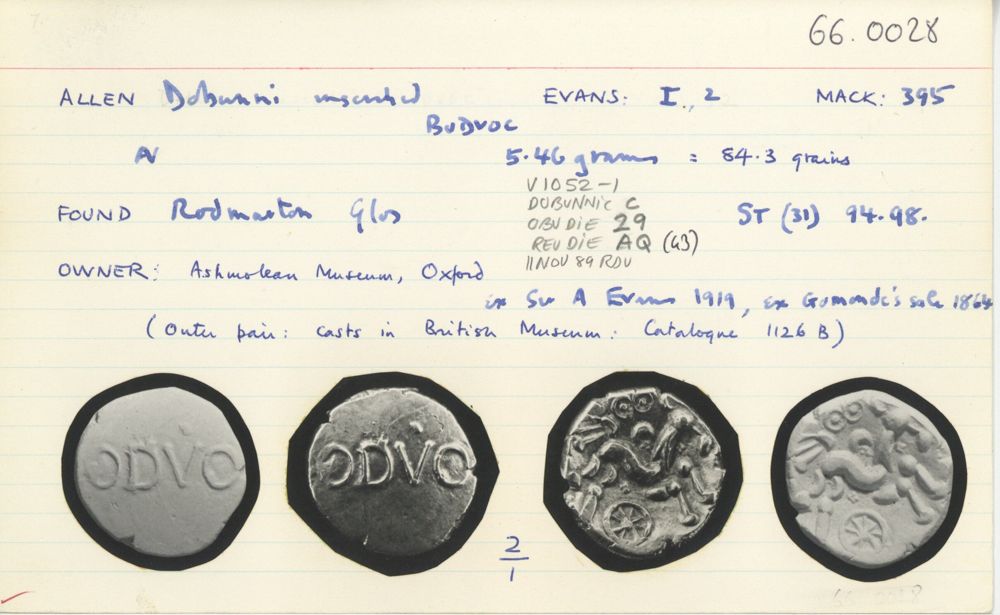 66.0028
ALLEN Dobunni inscribed EVANS: I., 2 MACK: 395
BODVOC
AV 5.46 grams = 84.3 grains
V1052-1
FOUND Rodmarton Glos DOBUNNIC C ST (31) 94.98.
OBV DIE 29
REV DIE AQ (43)
11 NOV 89 RDV
OWNER: Ashmolean Museum, Oxford
ex Sir A Evans 1919, ex Gomonde's sale 1864
(Outer pair: casts in British Museum: Catalogue 1126 B)
ODVO ODVO
2
1
66.0028